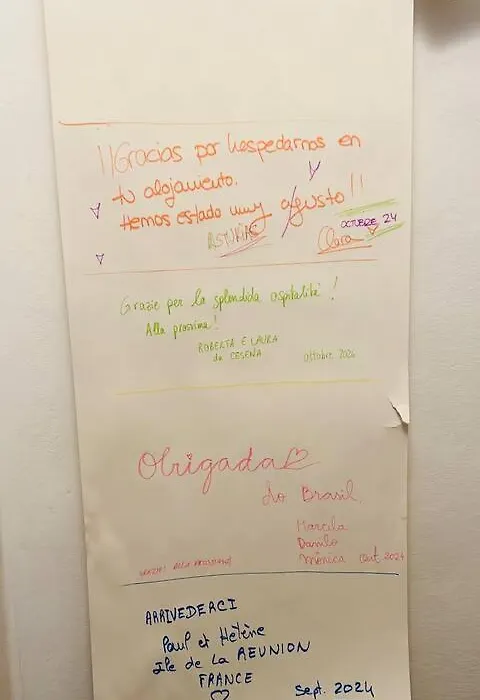 ¡¡Gracias por hospedarnos en
tu alojamiento.
Hemos estado muy agusto!!
ASTURIAS
OCTUBRE 24
Clara
Grazie per la splendida ospitalità!
Alla prossima!
ROBERTA E LAURA
da CESENA
ottobre 2024
Obrigada
do Brasil
Marcila
Danilo
Mônica Out 2024
GRAZIE! ALLA PROSSIMA!
ARRIVEDERCI
Paul et Hélène
Ile de La REUNION
FRANCE
Sept. 2024